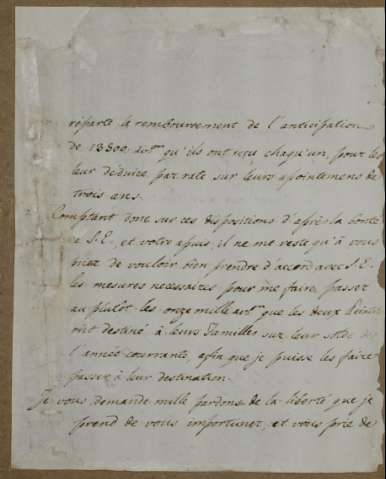 réparté le remboursement de l'anticipation
de 13800 qu'ils ont reçu chaqu'un, pour les
leur deduire par rate sur leurs apointemens de
trois ans.
Comptant donc sur ces dispositions d'après la bonté
de S.E. et votre apuis, il ne me reste qu'à vous
prier de vouloir bien prendre d'accord avec S.E.
les mesures necessaires pour me faire passer
au plutôt les onze mille que les deux
ont destiné à leurs Familles sur leur solde de
l'année courrante, afin que je puisse les faire
passer à leur destination.
Je vous demande mille pardons de la liberté que je
prend de vous importuner, et vous prie de